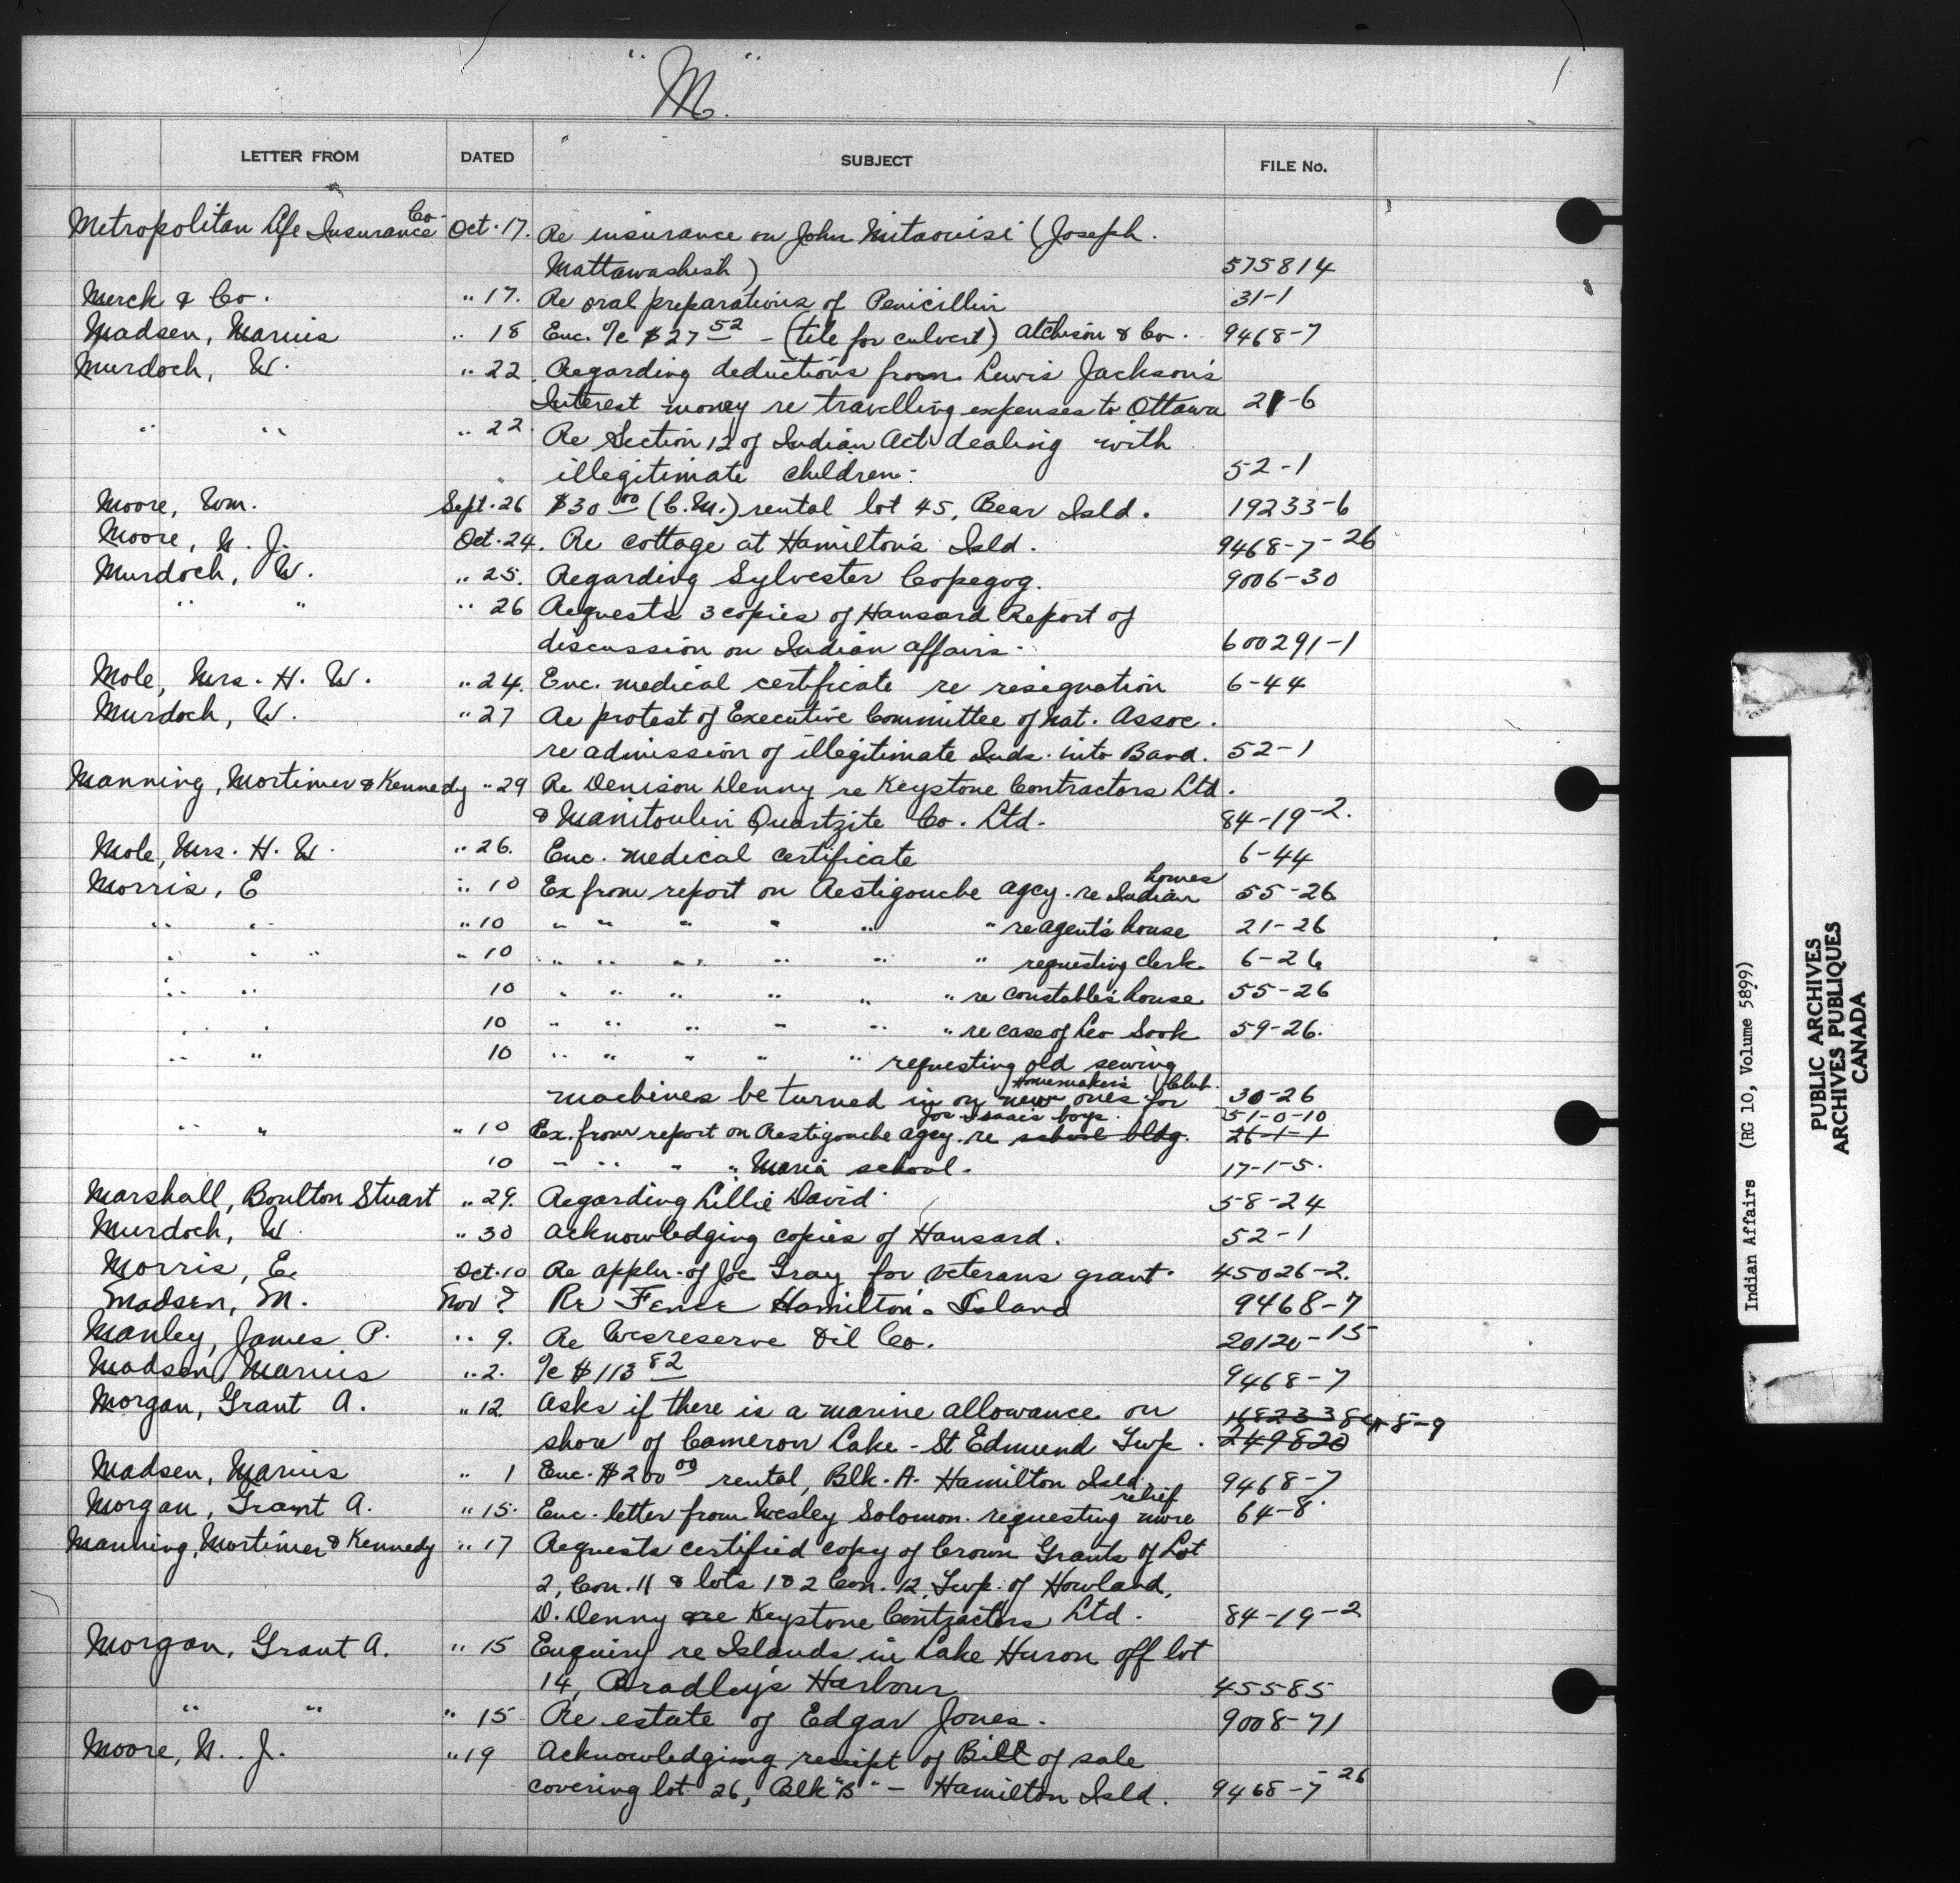 "M"
LETTER FROM DATED SUBJECT FILE No.
Metropolitan Life Insurance Co. Oct. 17. Re insurance on John Mitaouisi (Joseph
Mattawashish) 575814
Merck & Co. " 17. Re oral preparations of Penicillin 31-1
Madsen, Marius " 18 Enc. %c $27 52 - (tile for culvert) Atchison & Co. 9468-7
Murdoch, W. " 22. Regarding deductions from Lewis Jackson's
Interest money re travelling expenses to Ottawa 21-6
" " " 22. Re Section 12 of Indian Act dealing with
illegitimate children. 52-1
Moore, Wm. Sept. 26 $30 00 (C.M.) rental lot 45, Bear Isld. 19233-6
Moore, N. J. Oct. 24. Re cottage at Hamilton's Isld. 9468-7-26
Murdoch, W. " 25. Regarding Sylvester Copegog. 9006-30
" " " 26 Requests 3 copies of Hansard Report of
discussion on Indian affairs. 600291-1
Mole, Mrs. H. W. " 24. Enc. medical certificate re resignation 6-44
Murdoch, W. " 27 Re protest of Executive Committee of Nat. Assoc.
re admission of illegitimate Inds. into Band. 52-1
Manning, Mortimer & Kennedy " 29 Re Denison Denny re Keystone Contractors Ltd.
& Manitoulin Quartzite Co. Ltd. 84-19-2.
Mole, Mrs. H. W. " 26. Enc. medical certificate 6-44
Morris, E " 10 Ex from report on Restigouche agcy. re Indian homes 55-26
" " " 10 " " " " " " re agent's house 21-26
" " " " 10 " " " " " " requesting clerk 6-26
" " 10 " " " " " " re constable's house 55-26
" " 10 " " " " " " re case of Leo Sook 59-26.
" " 10 " " " " " requesting old sewing
machines be turned in on new ones for Homemaker's Club. 30-26
" " " 10 Ex. from report on Restigouche agcy. re school bldg. for Isaac's boys. 51-0-10 26-1-1
10 " " " " Maria school. 17-1-5.
Marshall, Boulton Stuart " 29. Regarding Lillie David 58-24
Murdoch, W " 30 Acknowledging copies of Hansard. 52-1
Morris, E. Oct. 10 Re appln. of Joe Gray for veterans grant. 45026-2.
Madsen, M. Nov ? Re Fence Hamilton's Island 9468-7
Manley, James P. " 9. Re Wesreserve Oil Co. 20120-15
Madsen, Marius " 2. %c $113 82 9468-7
Morgan, Grant A. " 12 Asks if there is a marine allowance on 84-8-9
shore of Cameron Lake - St Edmund Twp. 249820
Madsen, Marius " 1 Enc. $200 00 rental, Blk. A. Hamilton Isld. 9468-7
Morgan, Grant A. " 15. Enc. letter from Wesley Solomon requesting more relief 64-8.
Manning, Mortimer & Kennedy " 17 Requests certified copy of Crown Grants of Lot
2, Con. 11 & lots 1 & 2 Con. 12, Twp. of Howland,
D. Denny re Keystone Contractors Ltd. 84-19-2
Morgan, Grant A. " 15 Enquiry re Islands in Lake Huron off lot
14, Bradley's Harbour 45585
" " " 15 Re estate of Edgar Jones. 9008-71
Moore, N. J. " 19 Acknowledging receipt of Bill of sale
covering lot 26, Blk "B" - Hamilton Isld. 9468-7-26
Indian Affairs (RG 10, Volume 5899)
PUBLIC ARCHIVES
ARCHIVES PUBLIQUES
CANADA